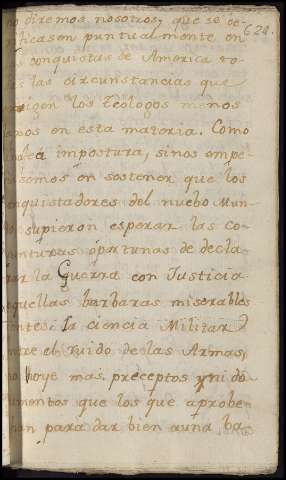 no diremos nosotros, que se ve-
ficason puntualmente en
s conquistas de America to-
s las circunstancias que
exigen los Teologos menos
en esta materia. Como
impostura, sinos empe-
semos en sostener que los
nquistadores del nuebo Mun-
supieron esperar las co-
unturas oportunas de decla-
rar la Guerra con Justicia
aquellas barbaras miserables
entes: la ciencia Militar
entre el ruido de las Armas,
no hoye mas preceptos y ni do-
umentos que los que aprobe-
han para dar bien auna ba
624.